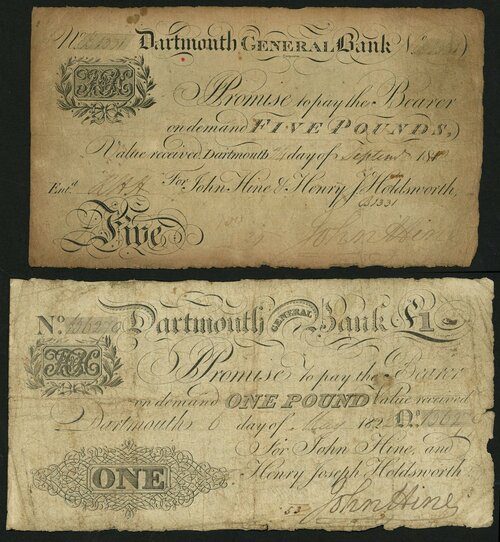 No Dartmouth GENERAL Bank No
I Promise to pay the Bearer
on demand FIVE POUNDS,
Value received Dartmouth day of Septemr 18
Entd For John Hine & Henry Js Holdsworth,
Five John Hine
No. Dartmouth GENERAL Bank £1
I Promise to pay the Bearer
on demand ONE POUND Value received
Dartmouth 6 day of 182 No.
For John Hine, and
ONE Henry Joseph Holdsworth
53 John Hine